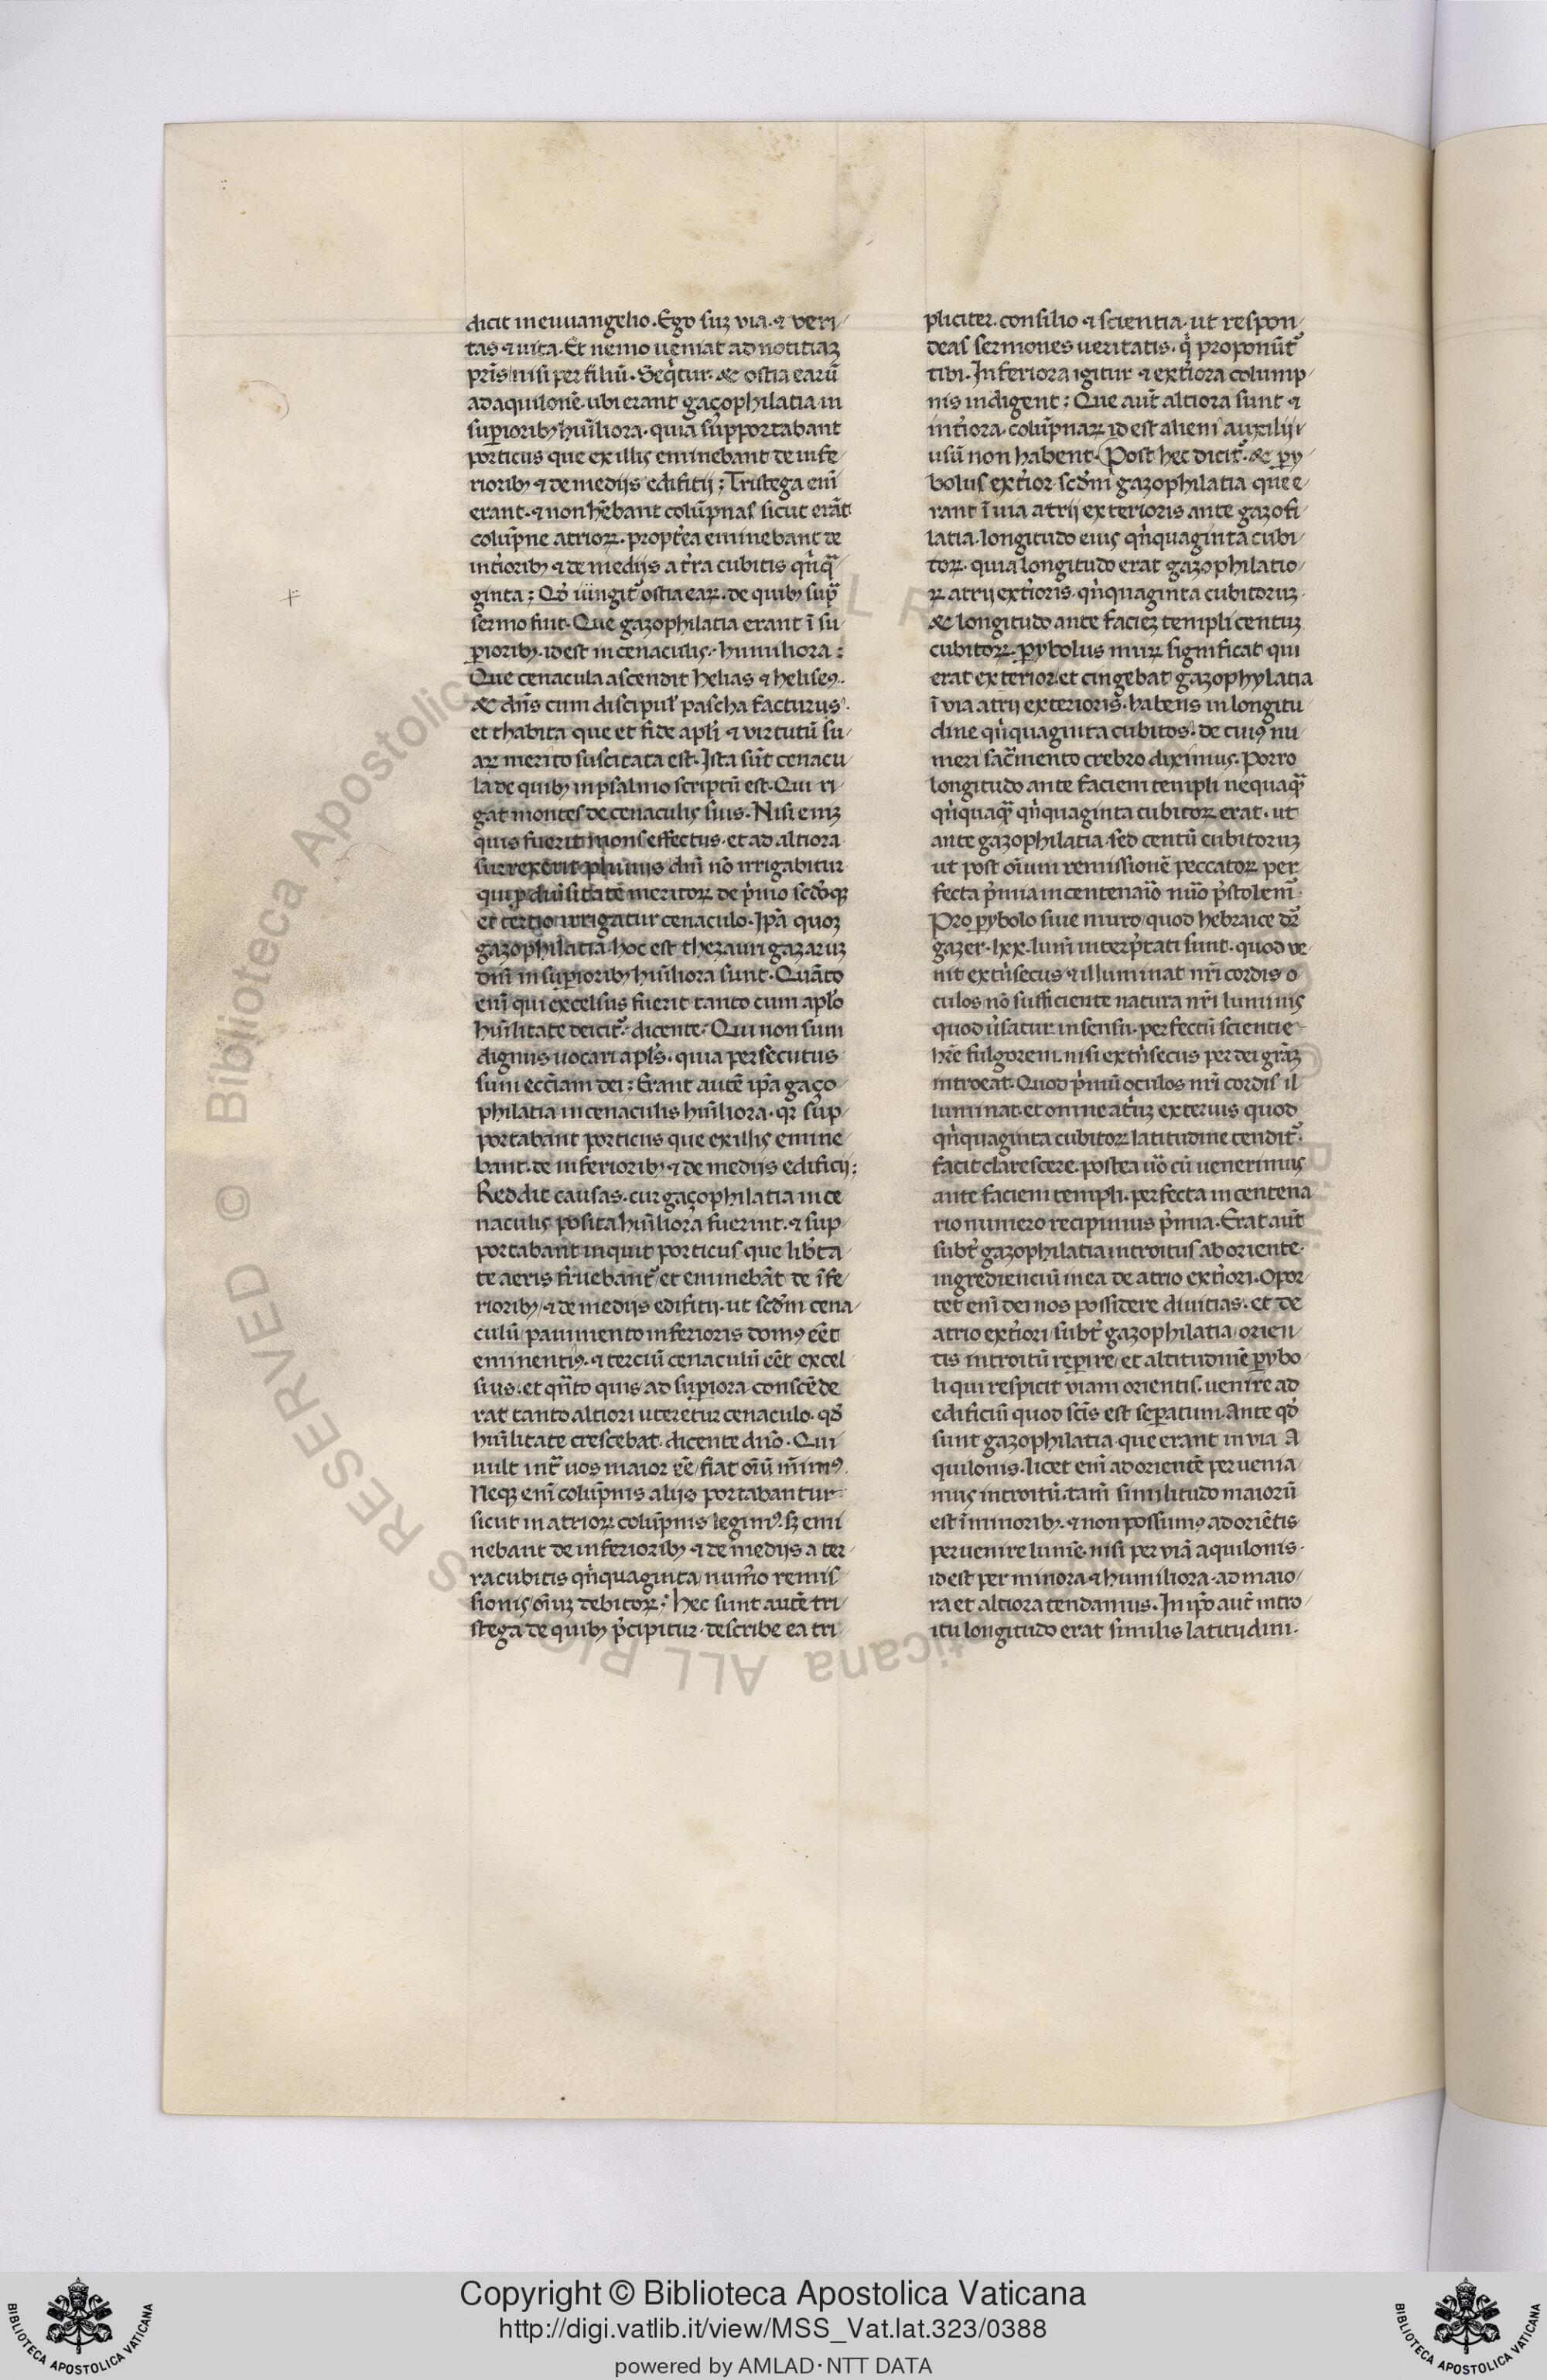 dicit in euuangelio. Ego suꝫ via. ⁊ veri/
tas ⁊ uita. Et nemo ueniat ad notitiaꝫ
pr̄is nisi per filiū. Seq̇tur. & ostia earū
ad aquilonē. ubi erant gaçophilatia in
suꝑioribꝫ hūiliora. quia supportabant
porticus que ex illis eminebant de infe
rioribꝫ ⁊ de medijs edifitij; Tristega enī
erant. ⁊ non hēbant colūpnas sicut erāt
colūpne atrioꝝ. propt̓ea eminebant de
int̓ioribꝫ ⁊ de medijs a t̓ra cubitis qn̓qᷓ
ginta; Qď iūngit᷑ ostia eaꝝ. de quibꝫ supᷓ
sermo fuit. Que gazophilatia erant ī su
ꝑioribꝫ. idest in cenaculis. humiliora:
Que cenacula ascendit helias ⁊ heliseꝰ.
& dn̄s cum discipul̓ pascha facturus.
et thabita que et fide apl̓i ⁊ virtutū su/
aꝝ merito suscitata est. Ista sūt cenacu
la de quibꝫ in psalmo scriptū est. Qui ri/
gat montes de cenaculis suis. Nisi enīꝫ
quis fuerit mons effectus. et ad altiora
surrexerit pluuijs dn̄i nō irrigabitur
qui ꝓ diūsitatē meritoꝝ de p̓mo scďoqꝫ
et tertio irrigatur cenaculo. Ip̄a quoꝫ
gazophilatia. hoc est thezauri gazaruꝫ
dn̄i in suꝑioribꝫ hūiliora sunt. Quāto
enī qui excelsus fuerit tanto cum apl̓o
hūilitate deicit᷑. dicente. Qui non sum
dignus uocari apl̓s. quia persecutus
sum eccl̄iam dei; Erant autē ip̄a gaço/
philatia in cenaculis hūiliora. qꝛ sup/
portabant porticus que ex illis emine/
bant. de inferioribꝫ ⁊ de medijs edificij;
Reddit causas. cur gaçophilatia in ce
naculis posita hūiliora fuerint. ⁊ sup/
portabant inquit porticus que lib̓ta/
te aeris fruebant᷑ et eminebāt de īfe/
rioribꝫ/ ⁊ de medijs edifitij. ut scďm cena/
culū pauimento inferioris domꝰ eēt
eminentiꝰ. ⁊ terciū cenaculū eēt excel
sius. et qn̄to quis ad suꝑiora conscēde
rat tanto altiori uteretur cenaculo. qď
hūilitate crescebat. dicente dn̄o. Qui
uult int̓ uos maior eē/ fiat oīū mīmꝰ.
Neqꝫ enī colūpnis alijs portabantur
sicut in atrioꝝ colūpnis legimꝰ. sꝫ emi
nebant de inferioribꝫ ⁊ de medijs a ter/
ra cubitis qn̓quaginta/ num̓o remis/
sionis oīuꝫ debitoꝝ; hec sunt autē tri/
stega de quibꝫ p̓cipitur. describe ea tri/
pliciter. consilio ⁊ scientia. ut respon/
deas sermones ueritatis. q̇ proponūt᷑
tibi. Inferiora igitur ⁊ ext̓iora colump/
nis indigent; Que aut̄ altiora sunt ⁊
int̓iora. colūpnaꝝ id est alieni auxilij/
usū non habent. Post hec dicit᷑. & ꝑy/
bolus ext̓ior scďm gazophilatia que e/
rant ī uia atrij exterioris ante gazofi/
latia. longitudo eius qn̓quaginta cubi/
toꝝ. quia longitudo erat gazophilatio/
ꝝ atrij ext̓ioris. qn̓quaginta cubitoruꝫ.
& longitudo ante facieꝫ templi centuꝫ
cubitoꝝ. ꝑybolus muꝝ significat qui
erat exterior. et cingebat gazophylatia
ī via atrij exterioris. habens in longitu
dine qn̓quaginta cubitos. de cuiꝰ nu
meri sac̄mento crebro diximus. Porro
longitudo ante faciem templi nequaqᷓ
qn̓quaqᷓ qn̓quaginta cubitoꝝ erat. ut
ante gazophilatia. sed centū cubitoruꝫ
ut post oīum remissionē peccatoꝝ per/
fecta p̓mia in centenaῑo nūo p̓stolem᷑.
Pro ꝑybolo siue muro/ quod hebraice dr̄
gazer. lxx. lum̄ interp̓tati sunt. quod ve
nit ext̓nsecus. ⁊ illuminat nr̄i cordis o
culos nō sufficiente natura nr̄i luminis
quod ūsatur in sensu. perfectū scientie
hr̄e fulgorem. nisi ext̓nsecus per dei gr̄aꝫ
introeat. Quod p̓mū oculos nr̄i cordis il
luminat. et omne at̓uꝫ exterius quod
qn̓quaginta cubitoꝝ latitudine tendit᷑.
facit clarescere. postea ūo cū uenerimus
ante faciem templi. perfecta in centena
rio numero recipimus p̓mia. Erat aut̄
subt̓ gazophilatia introitus ab oriente.
ingredienciū in ea de atrio ext̓iori. Opor/
tet enī dei nos possidere diuitias. et de
atrio ext̓iori/ subt̓ gazophilatia/ orien/
tis introitū reꝑire/ et altitudinē ꝑybo/
li qui respicit viam orientis. uenire ad
edificiū quod scīs est seꝑatum. Ante qď
sunt gazophilatia. que erant in via A
quilonis. licet enī ad orientē per uenia/
mus introitū. tam̄ similitudo maiorū
est ī minoribꝫ. ⁊ non possumꝰ ad oriētis
peruenire lumē. nisi per viā aquilonis.
idest per minora ⁊ humiliora. ad maio/
ra et altiora tendamus. In ip̄o aut̄ intro/
itu longitudo erat similis latitudini.
Copyright © Biblioteca Apostolica Vaticana
http://digi.vatlib.it/view/MSS_Vat.lat.323/0388
powered by AMLAD·NTT DATA